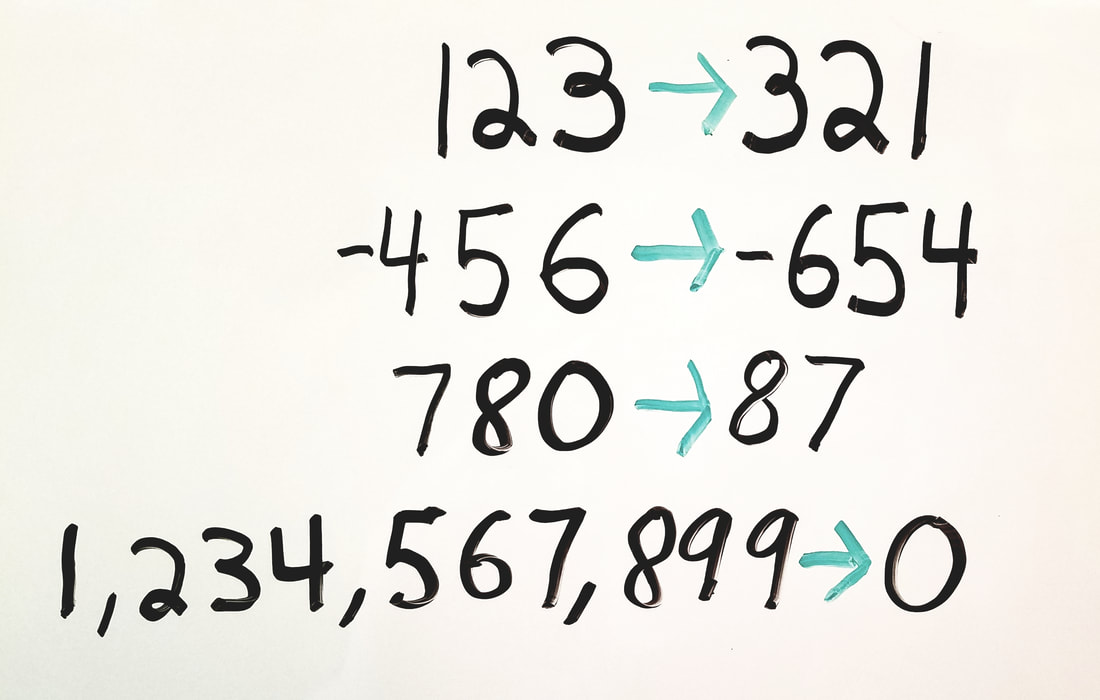 123 → 321
-456 → -654
780 → 87
1,234,567,899 → 0